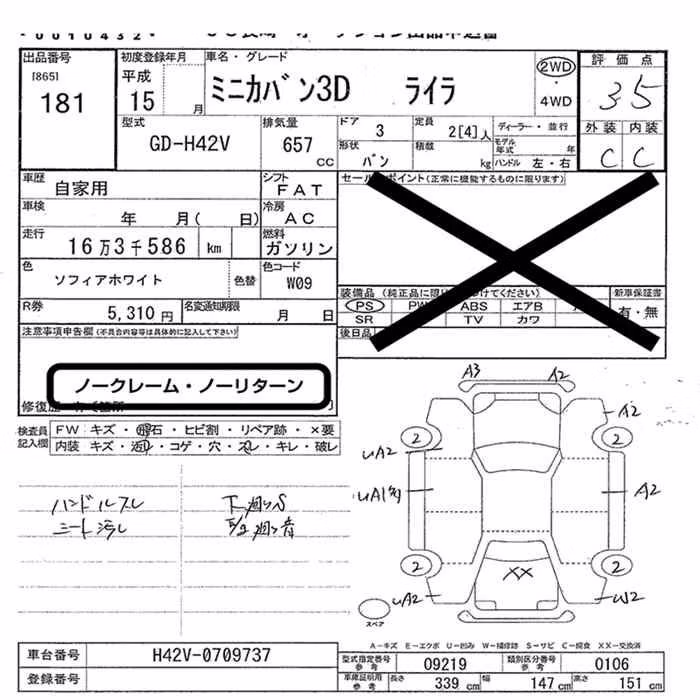 0010432
出品番号 初度登録年月 車名・グレード 評価点
[865] 平成 ミニカバン3D ライラ 2WD 3.5
181 15 月 ・4WD
外装 内装
型式 排気量 ドア 3 定員 2[4]人 ディーラー・並行 C C
GD-H42V 657 CC 形状 バン 積載 kg モデル年式 年
ハンドル 左・右
車歴 自家用 シフト FAT セールスポイント(正常に機能するものに限ります)
車検 年 月( 日) 冷房 AC
走行 16万3千586 km 燃料 ガソリン
色 ソフィアホワイト 色替 色コード W09
装備品 (純正品に限り 付けてください) 新車保証書
R券 5,310円 名変通知期限 月 日 PS PW ABS エアB 有・無
SR TV カワ
注意事項申告欄 (不具合内容等は具体的に記入して下さい) 後日品
ノークレーム・ノーリターン
修復歴
検査員記入欄 FW: キズ・飛石・ヒビ割・リペア跡・×要
内装 キズ・汚れ・コゲ・穴・スレ・キレ・破レ
A3 A2
A2
2 2
UA2
ハンドルスレ 下廻りS
A2
シート汚れ
2 2
XX
UA2 W2
スペア
A-キズ E-エクボ U-凹み W-補修跡 S-サビ C-腐食 XX-交換済
車台番号 H42V-0709737 型式指定番号 参考 09219 類別区分番号 参考 0106
登録番号 車庫証明用 参考 長さ 339 cm 幅 147 cm 高さ 151 cm